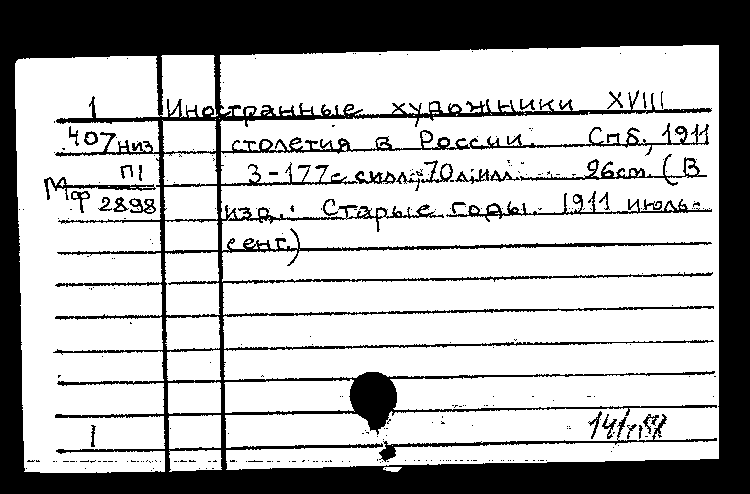 1 Иностранные художники XVIII
407 низ столетия в России. Спб., 1911
П1 3-177 с. с илл.; 70 л. илл. 26 cm. (В
Мф 2898 изд.: Старые годы. 1911 июль-
сент.)
1